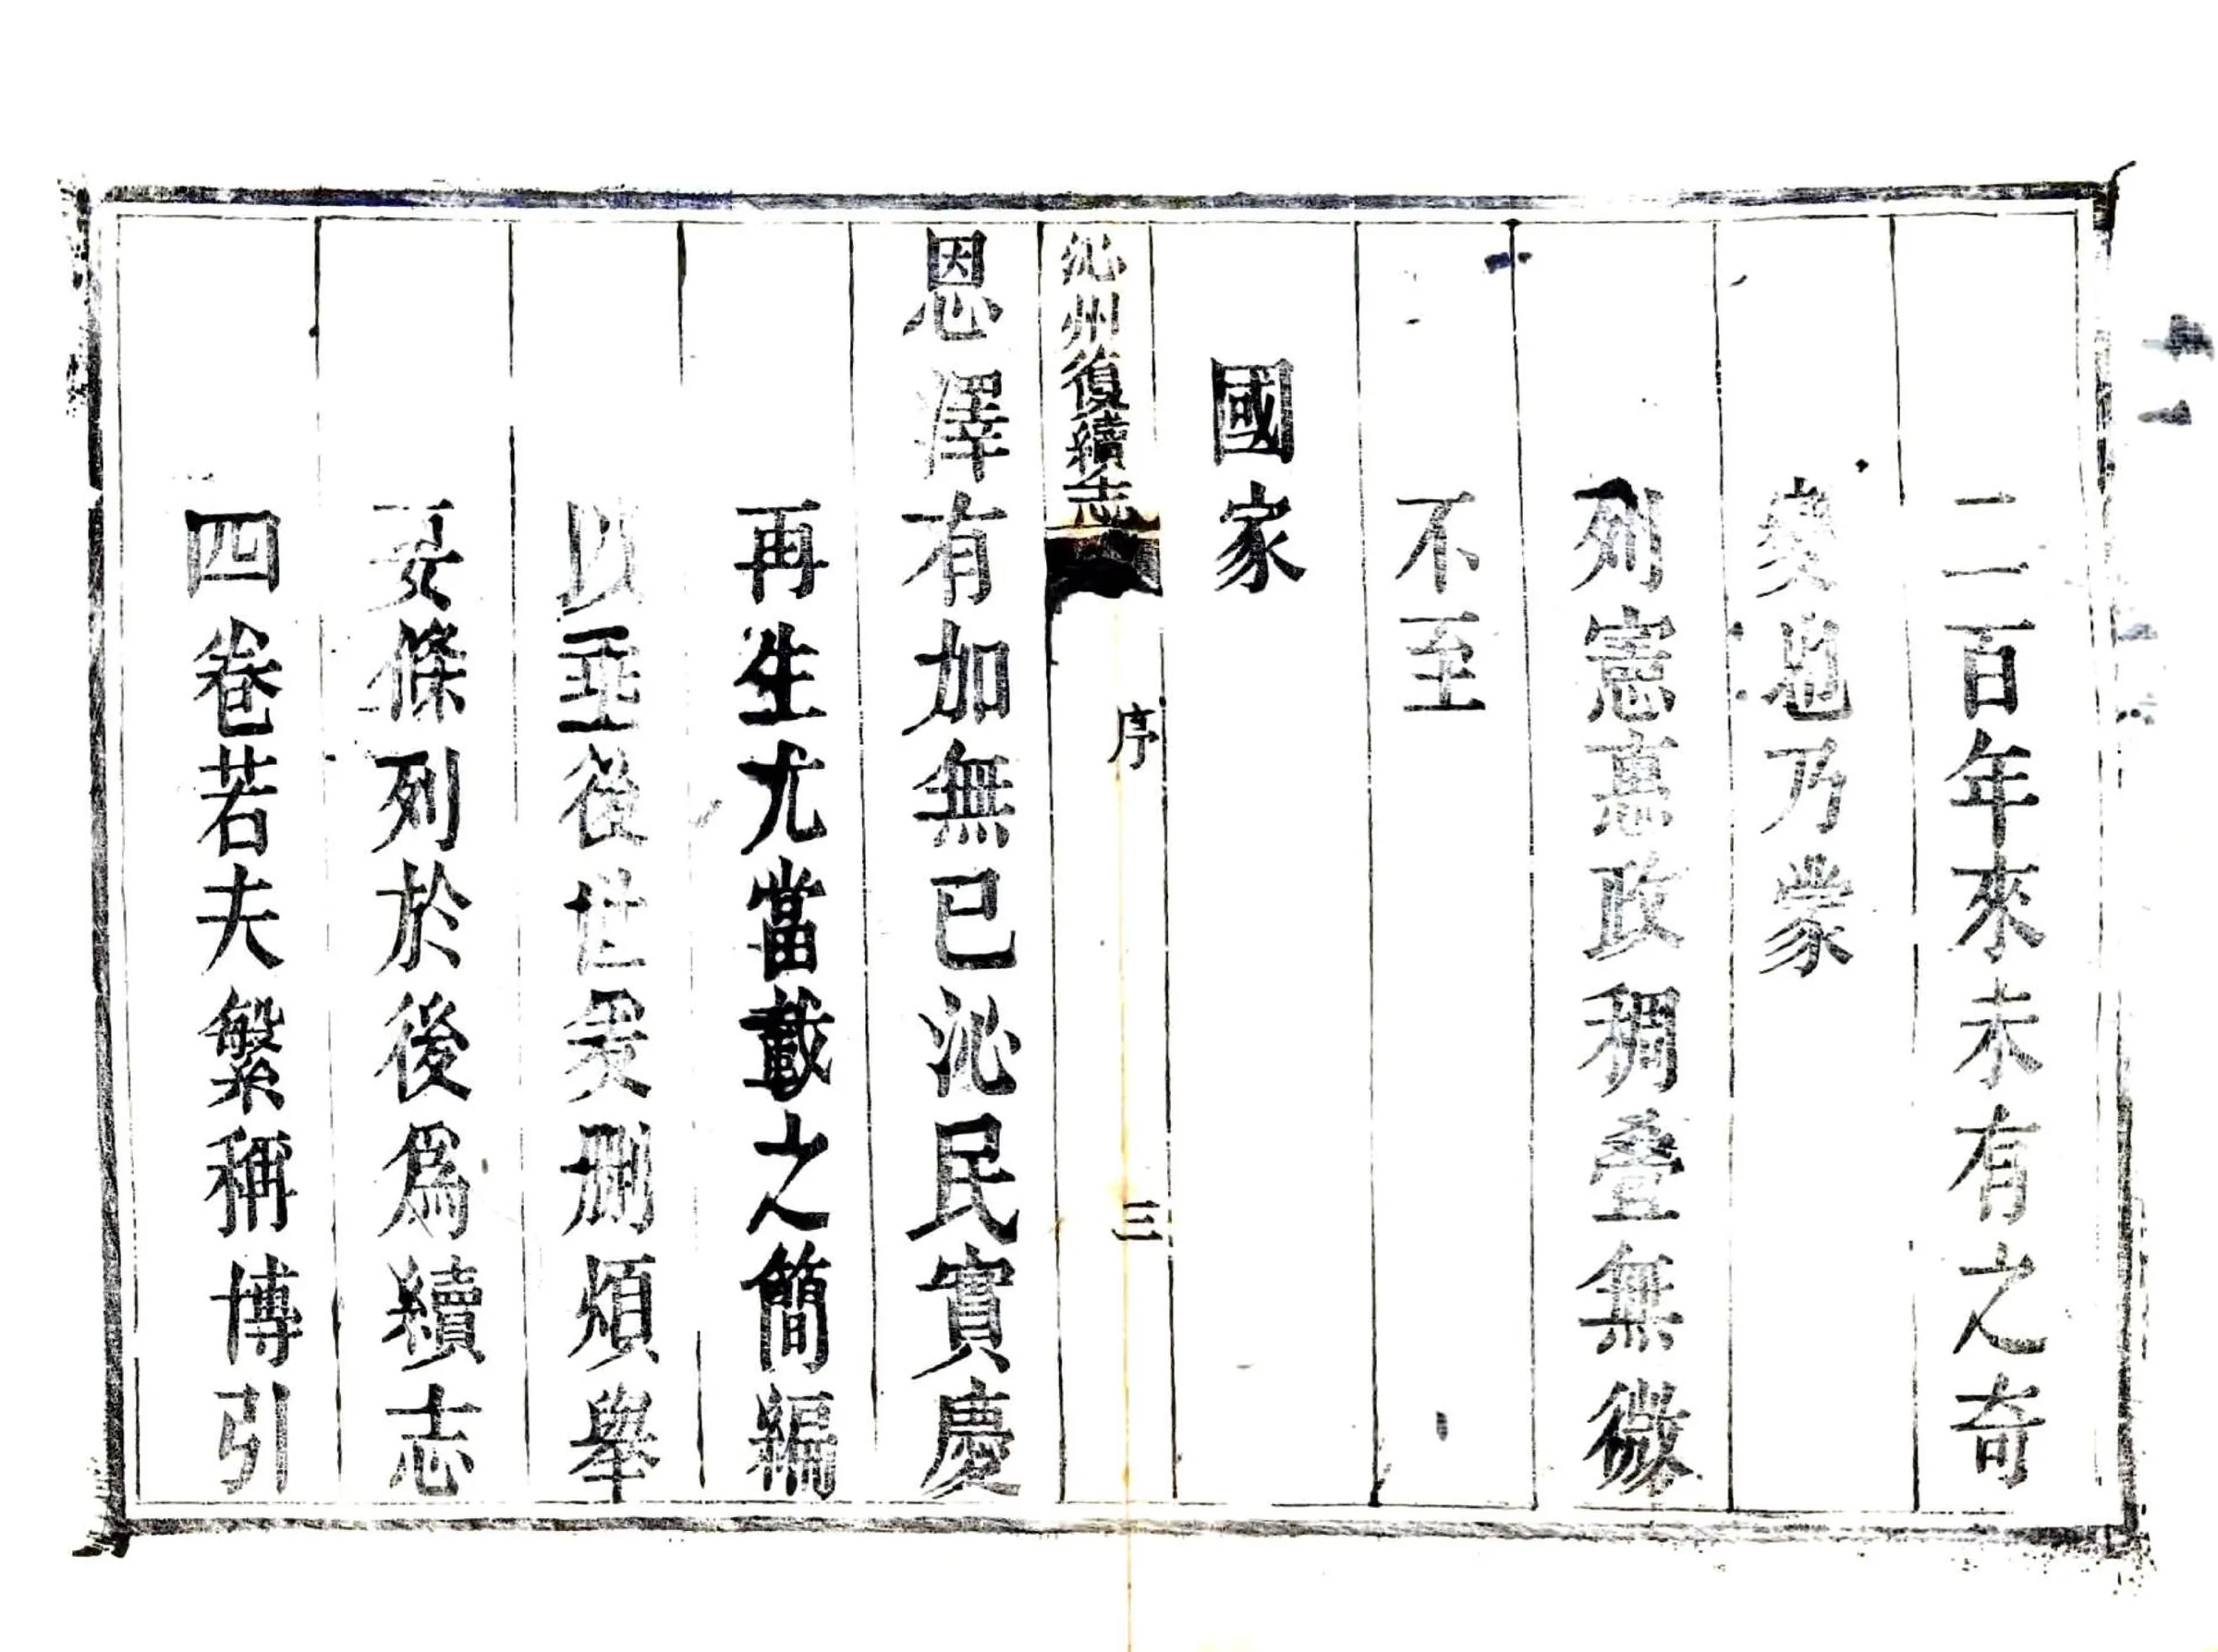 二百年來未有之奇
變也乃蒙
列憲惠政稠疊無微
不至
國家
沁州復續志
序
三
恩澤有加無已沁民實慶
再生尤當載之簡編
以垂後世爰刪煩舉
要條列於後爲續志
四卷若夫繁稱博引